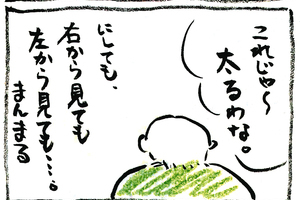 これじゃ〜
太るわな。
にしても、
右から見ても
左から見ても・・・・。
まんまる